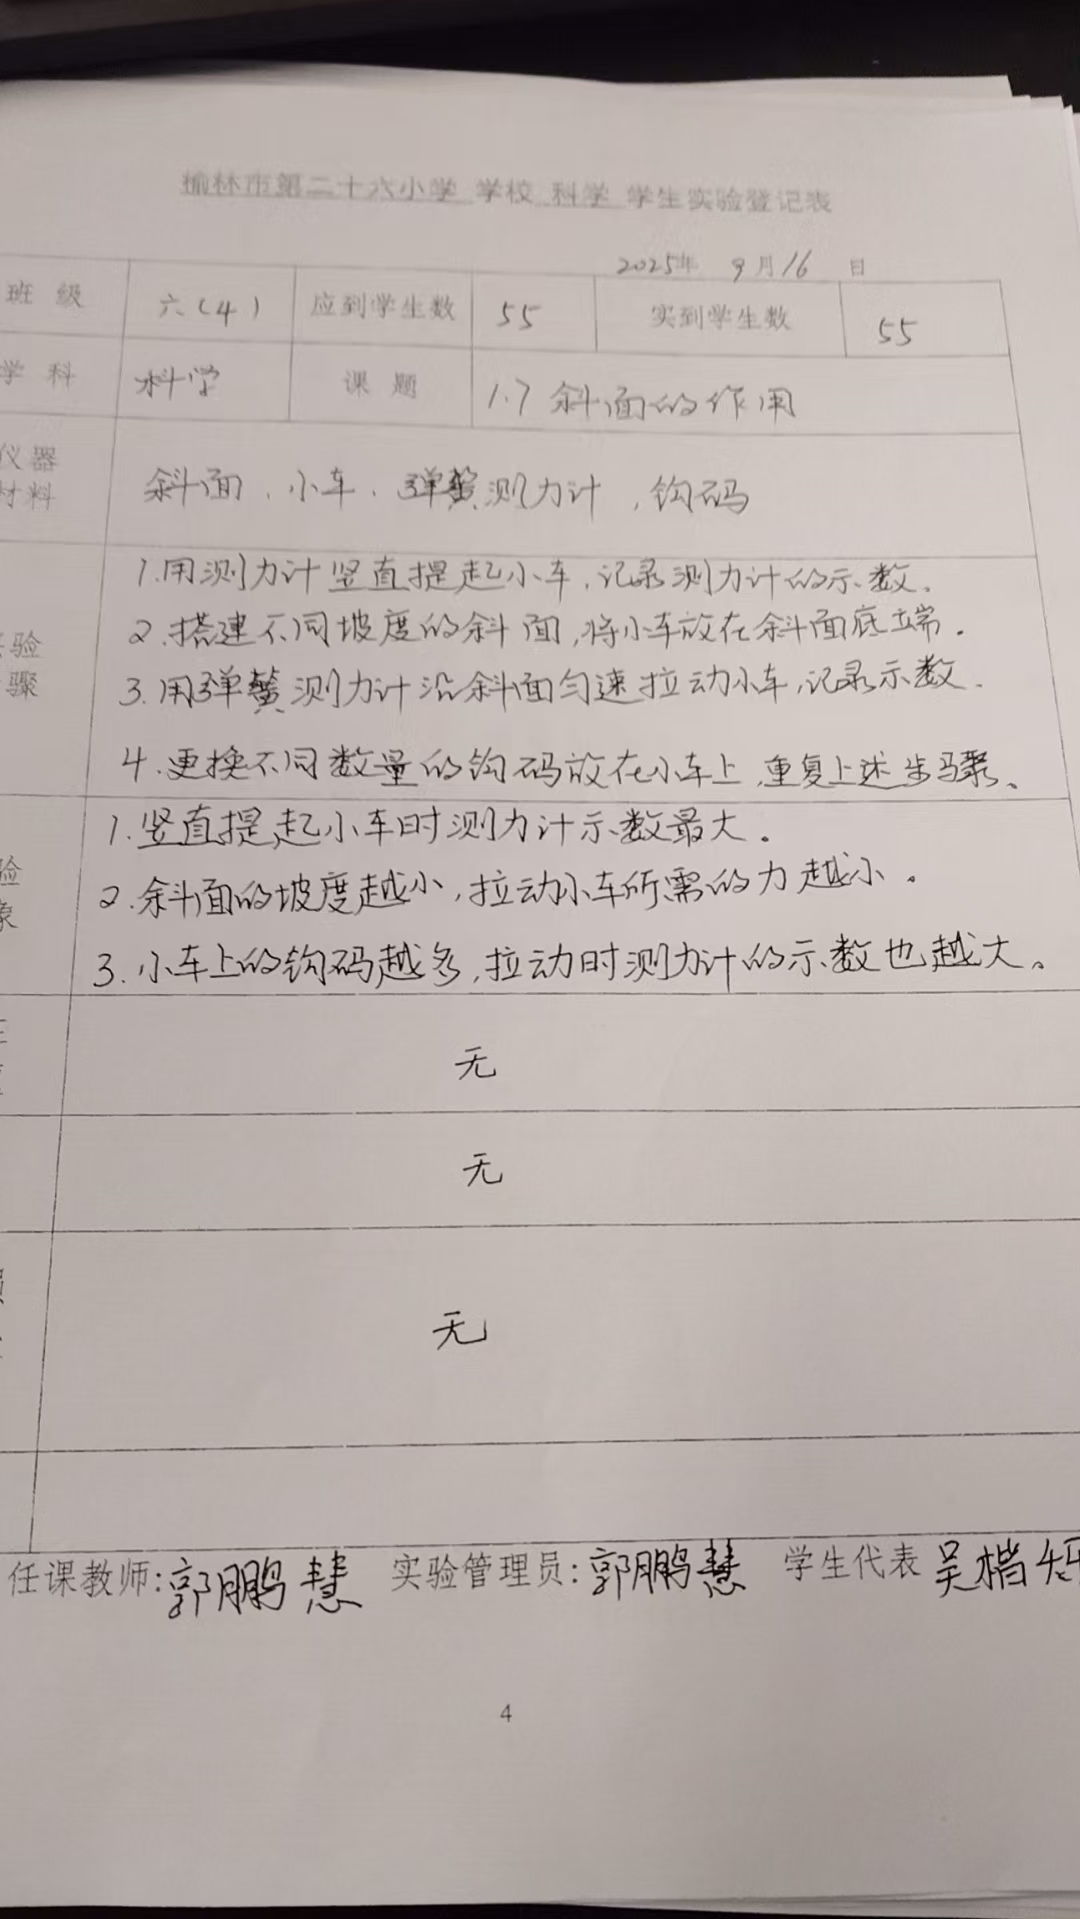 榆林市第二十六小学 学校 科学 学生实验登记表
2025年 9月16日
班级 六(4) 应到学生数 55 实到学生数 55
学科 科学 课题 1.7 斜面的作用
仪器 斜面、小车、弹簧测力计、钩码
材料
1.用测力计竖直提起小车,记录测力计的示数。
2.搭建不同坡度的斜面,将小车放在斜面底端.
验
骤
3.用弹簧测力计沿斜面匀速拉动小车,记录示数.
4.更换不同数量的钩码放在小车上,重复上述步骤。
1.竖直提起小车时测力计示数最大.
验
象
2.斜面的坡度越小,拉动小车所需的力越小.
3.小车上的钩码越多,拉动时测力计的示数也越大。
无
无
无
任课教师:郭鹏慧 实验管理员:郭鹏慧 学生代表 吴楷
4